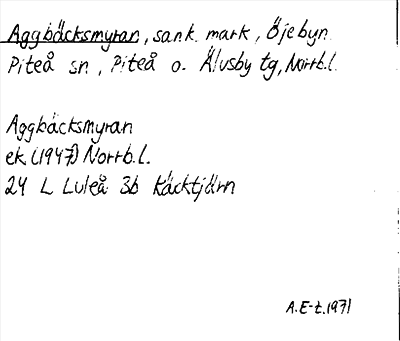 Aggbäcksmyran, sank mark, Öjebyn
Piteå sn, Piteå o. Älvsby tg, Norrb.l.
Aggbäcksmyran
ek. (1947) Norrb.l.
24 L Luleå 3b Käcktjärn
A.E-t.1971